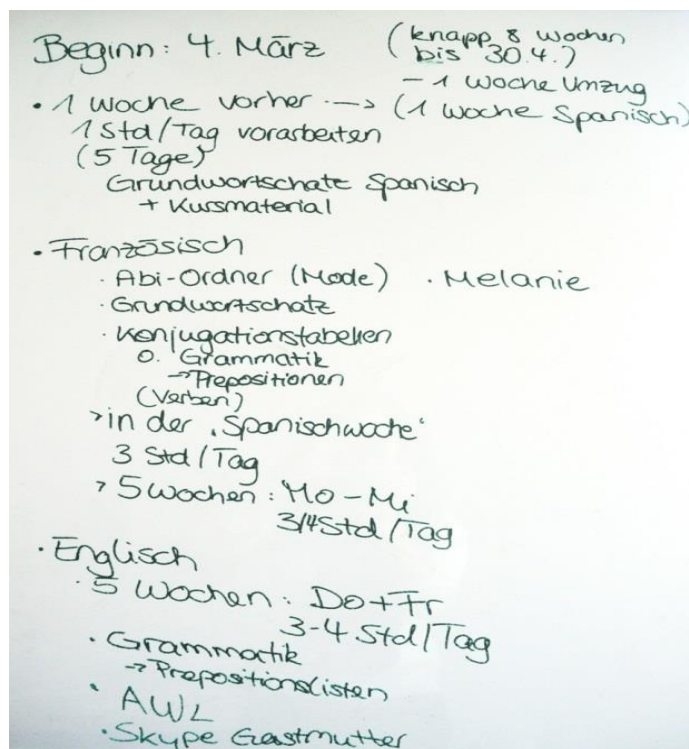 Beginn: 4. März (knapp 8 Wochen
bis 30.4.)
- 1 Woche Umzug
• 1 Woche vorher --> (1 Woche Spanisch)
1 Std/Tag vorarbeiten
(5 Tage)
Grundwortschatz Spanisch
+ Kursmaterial
• Französisch
· Abi-Ordner (Mode) · Melanie
· Grundwortschatz
· Konjugationstabellen
o. Grammatik
→ Prepositionen
(Verben)
> in der "Spanischwoche"
3 Std/Tag
> 5 Wochen: Mo-Mi
3/4 Std/Tag
• Englisch
· 5 Wochen: Do+Fr
3-4 Std/Tag
· Grammatik
→ Prepositionslisten
· AWL
· Skype Gastmutter